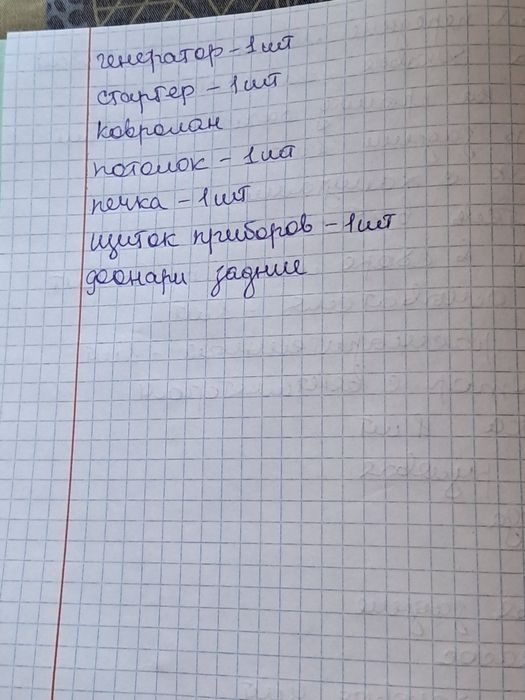 генератор - 1 шт
стартер - 1 шт
ковролан
потолок - 1 шт
печка - 1 шт
щиток приборов - 1 шт
фонари задние